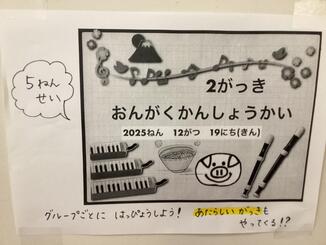 5ねん
せい
2がっき
おんがくかんしょうかい
2025ねん 12がつ 19にち(きん)
グループごとに はっぴょうしよう!
あたらしい がっきも
やってくる!?